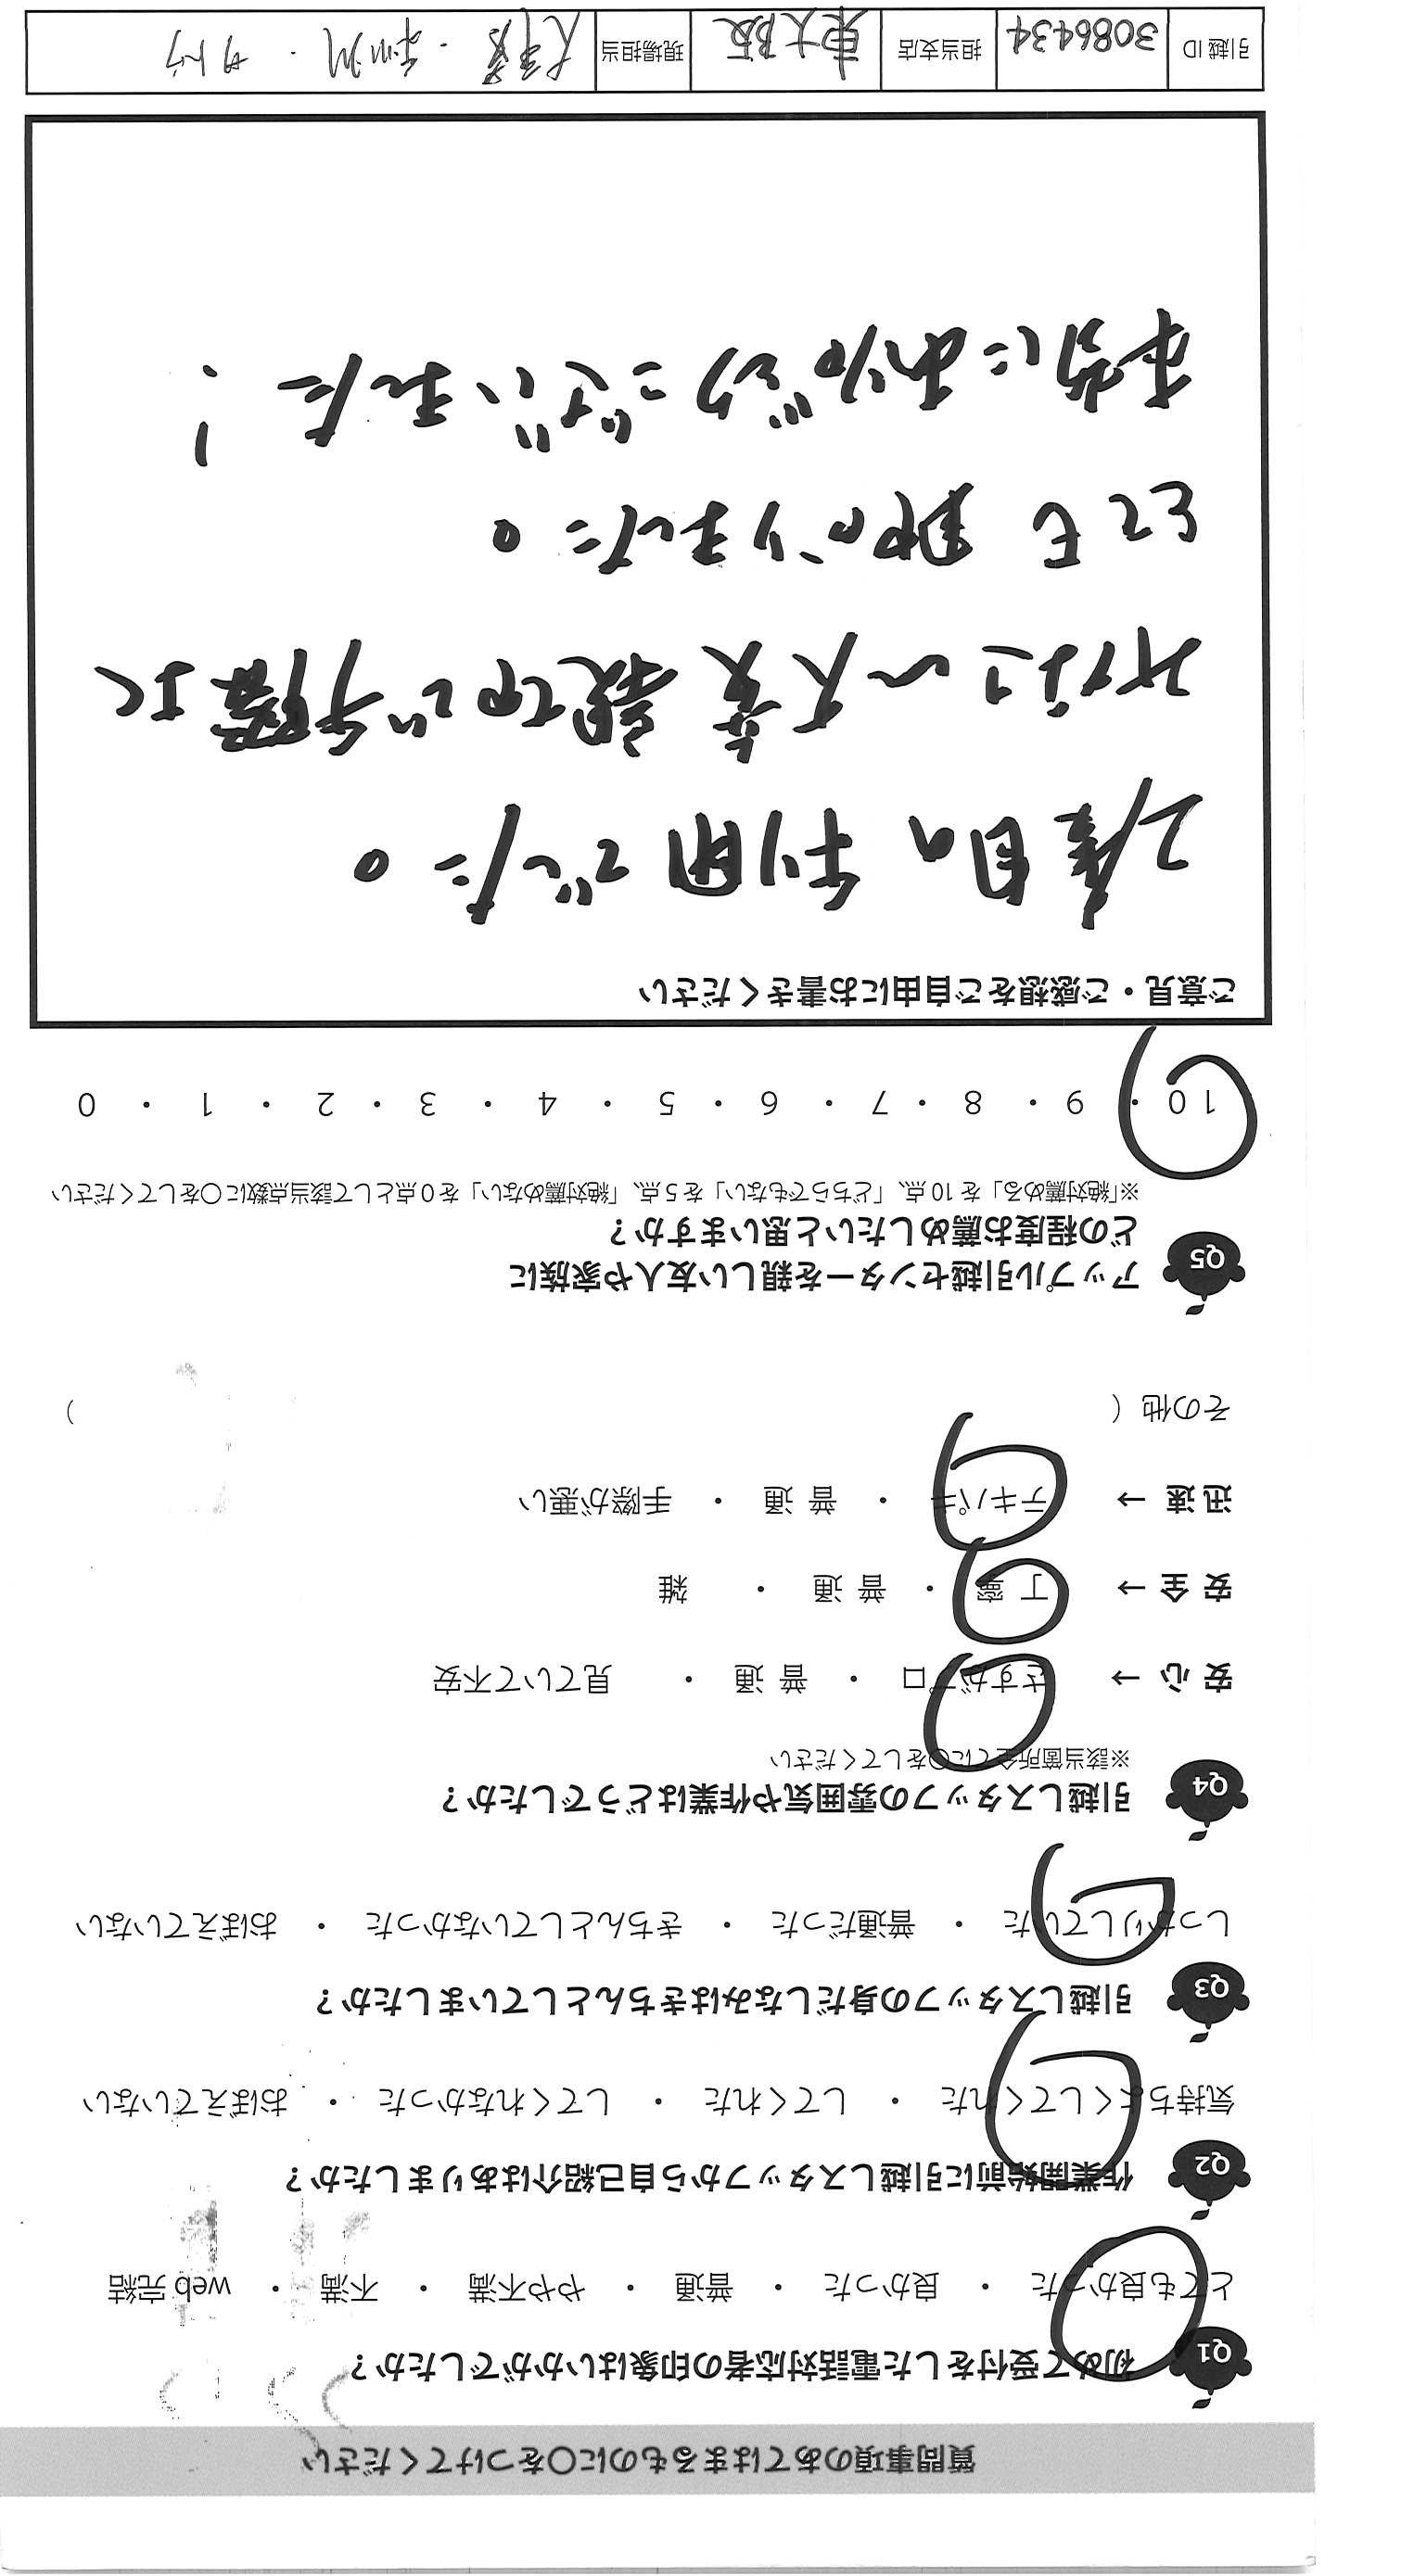 質問事項のあてはまるものに○をつけてください
Q1 初めて受付をした電話対応者の印象はいかがでしたか？
とても良かった ・ 良かった ・ 普通 ・ やや不満 ・ 不満 ・ web 完結
Q2 作業開始前に引越しスタッフから自己紹介はありましたか？
気持ちよくしてくれた ・ してくれた ・ してくれなかった ・ おぼえていない
Q3 引越しスタッフの身だしなみはきちんとしていましたか？
しっかりしていた ・ 普通だった ・ きちんとしていなかった ・ おぼえていない
Q4 引越しスタッフの雰囲気や作業はどうでしたか？
※該当箇所全てに○をしてください
安心 → さすがプロ ・ 普通 ・ 見ていて不安
安全 → 丁寧 ・ 普通 ・ 雑
迅速 → テキパキ ・ 普通 ・ 手際が悪い
その他（ ）
Q5 アップル引越センターを親しい友人や家族に
どの程度お薦めしたいと思いますか？
※「絶対薦める」を 10 点、「どちらでもない」を 5 点、「絶対薦めない」を 0 点として該当点数に○をしてください
10 ・ 9 ・ 8 ・ 7 ・ 6 ・ 5 ・ 4 ・ 3 ・ 2 ・ 1 ・ 0
ご意見・ご感想をご自由にお書きください
2度目の利用でした。
大変親切で手際よく
とても助かりました。
本当にありがとうございました！
引越 ID 3086434 担当支店 東大阪 現場担当 ・ ・ サトウ